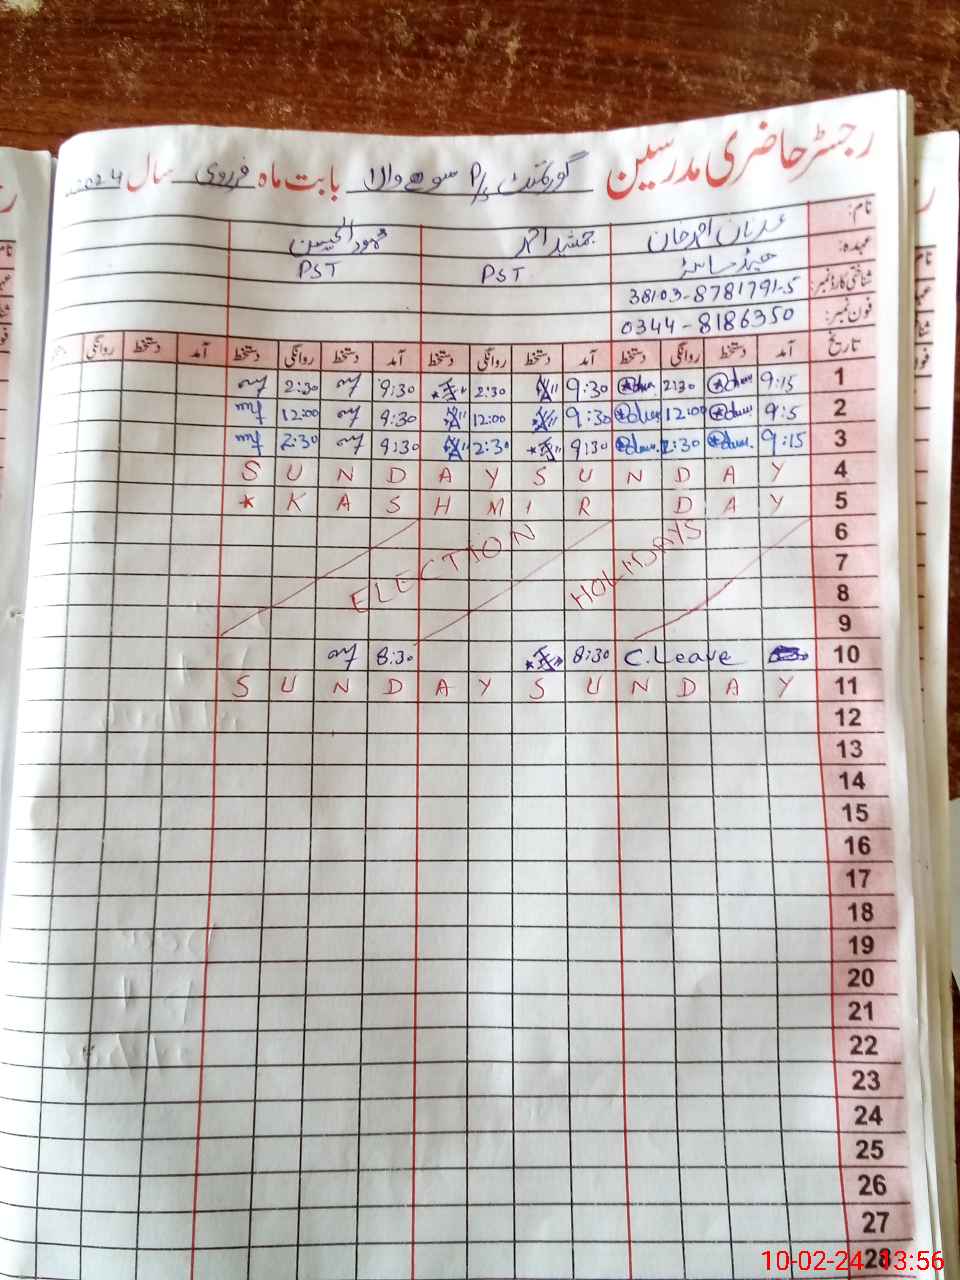 رجسٹر حاضری مدرسین گورنمنٹ P/S سوھے والا بابت ماہ فروری سال 2024
نام: عدنان احمد خان جمشید احمد محمود الحسن
عہدہ: ہیڈ ماسٹر PST PST
شناختی کارڈ نمبر: 38103-8781791-5
فون نمبر: 0344-8186350
تاریخ آمد دستخط روانگی دستخط آمد دستخط روانگی دستخط آمد دستخط روانگی دستخط آمد دستخط روانگی
1 9:15 2:30 9:30 2:30 9:30 2:30
2 9:5 12:00 9:30 12:00 9:30 12:00
3 9:15 2:30 9:30 2:30 9:30 2:30
4 S U N D A Y S U N D A Y
5 * K A S H M I R D A Y
6
7
ELECTION HOLIDAYS
8
9
10 C. Leave 8:30 8:30
11 S U N D A Y S U N D A Y
12
13
14
15
16
17
18
19
20
21
22
23
24
25
26
27
28
10-02-24 13:56